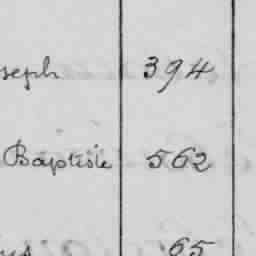 seph 394
Baptiste 562
65